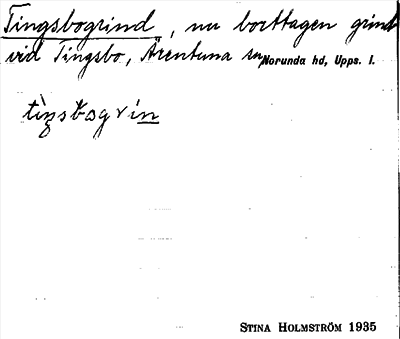 Tingsbogrind, nu borttagen grind
vid Tingsbo, Ärentuna sn, Norunda hd, Upps. l.
tìŋsbogrin
STINA HOLMSTRÖM 1935